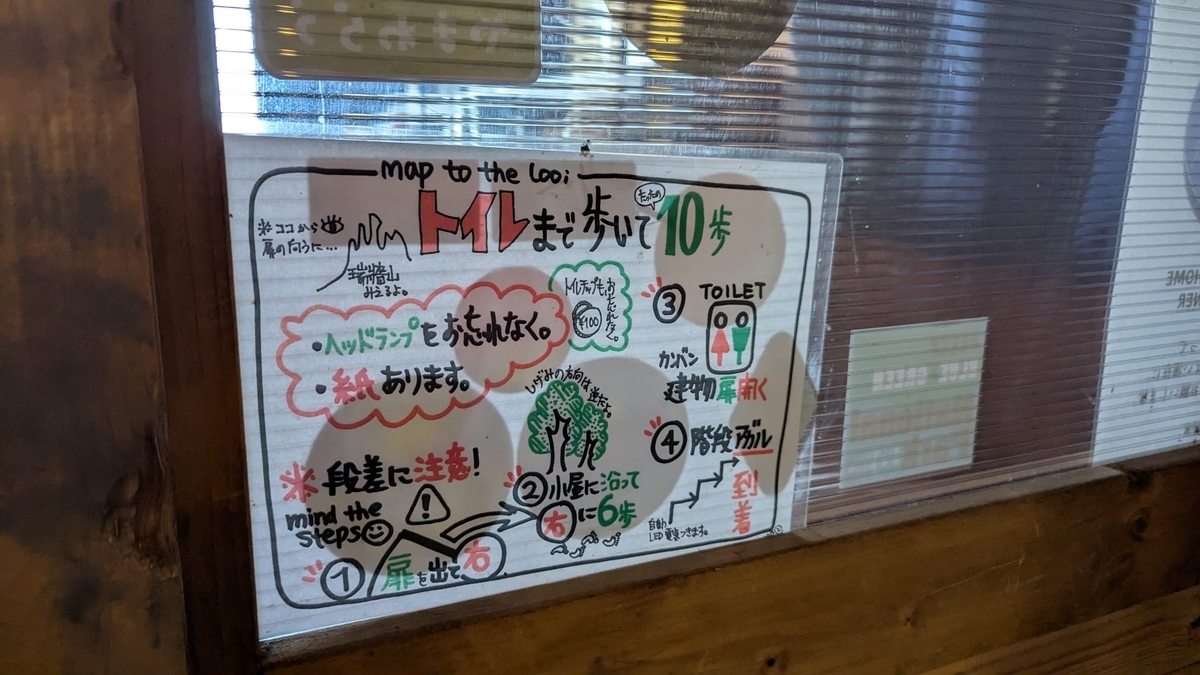 map to the Loo;
トイレまで歩いて
たったの
10歩
※ココから
扉の向うに…
瑞牆山
みえるよ。
・ヘッドランプをお忘れなく。
・紙あります。
トイレチップも、お忘れなく。
¥100
しげみの方向は逆だよ。
※段差に注意!
mind the
steps
①扉を出て、右
②小屋に沿って
右に6歩
③
TOILET
カンバン
建物扉開く
④階段
到着
自動